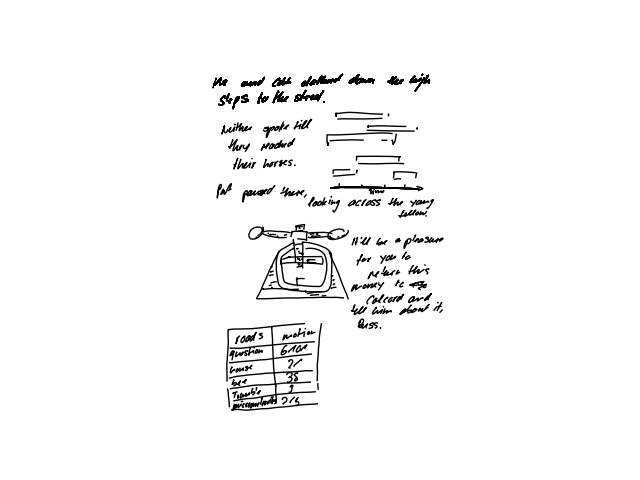 He and Cobb clattered down the high
steps to the street.
Neither spoke till
they reached
their horses.
Pat paused there,
looking across the young
fellow.
time
It'll be a pleasure
for you to
return this
money to
Calcord and
tell him about it,
Buss.
roads motion
question
house
bee 38
Trouble